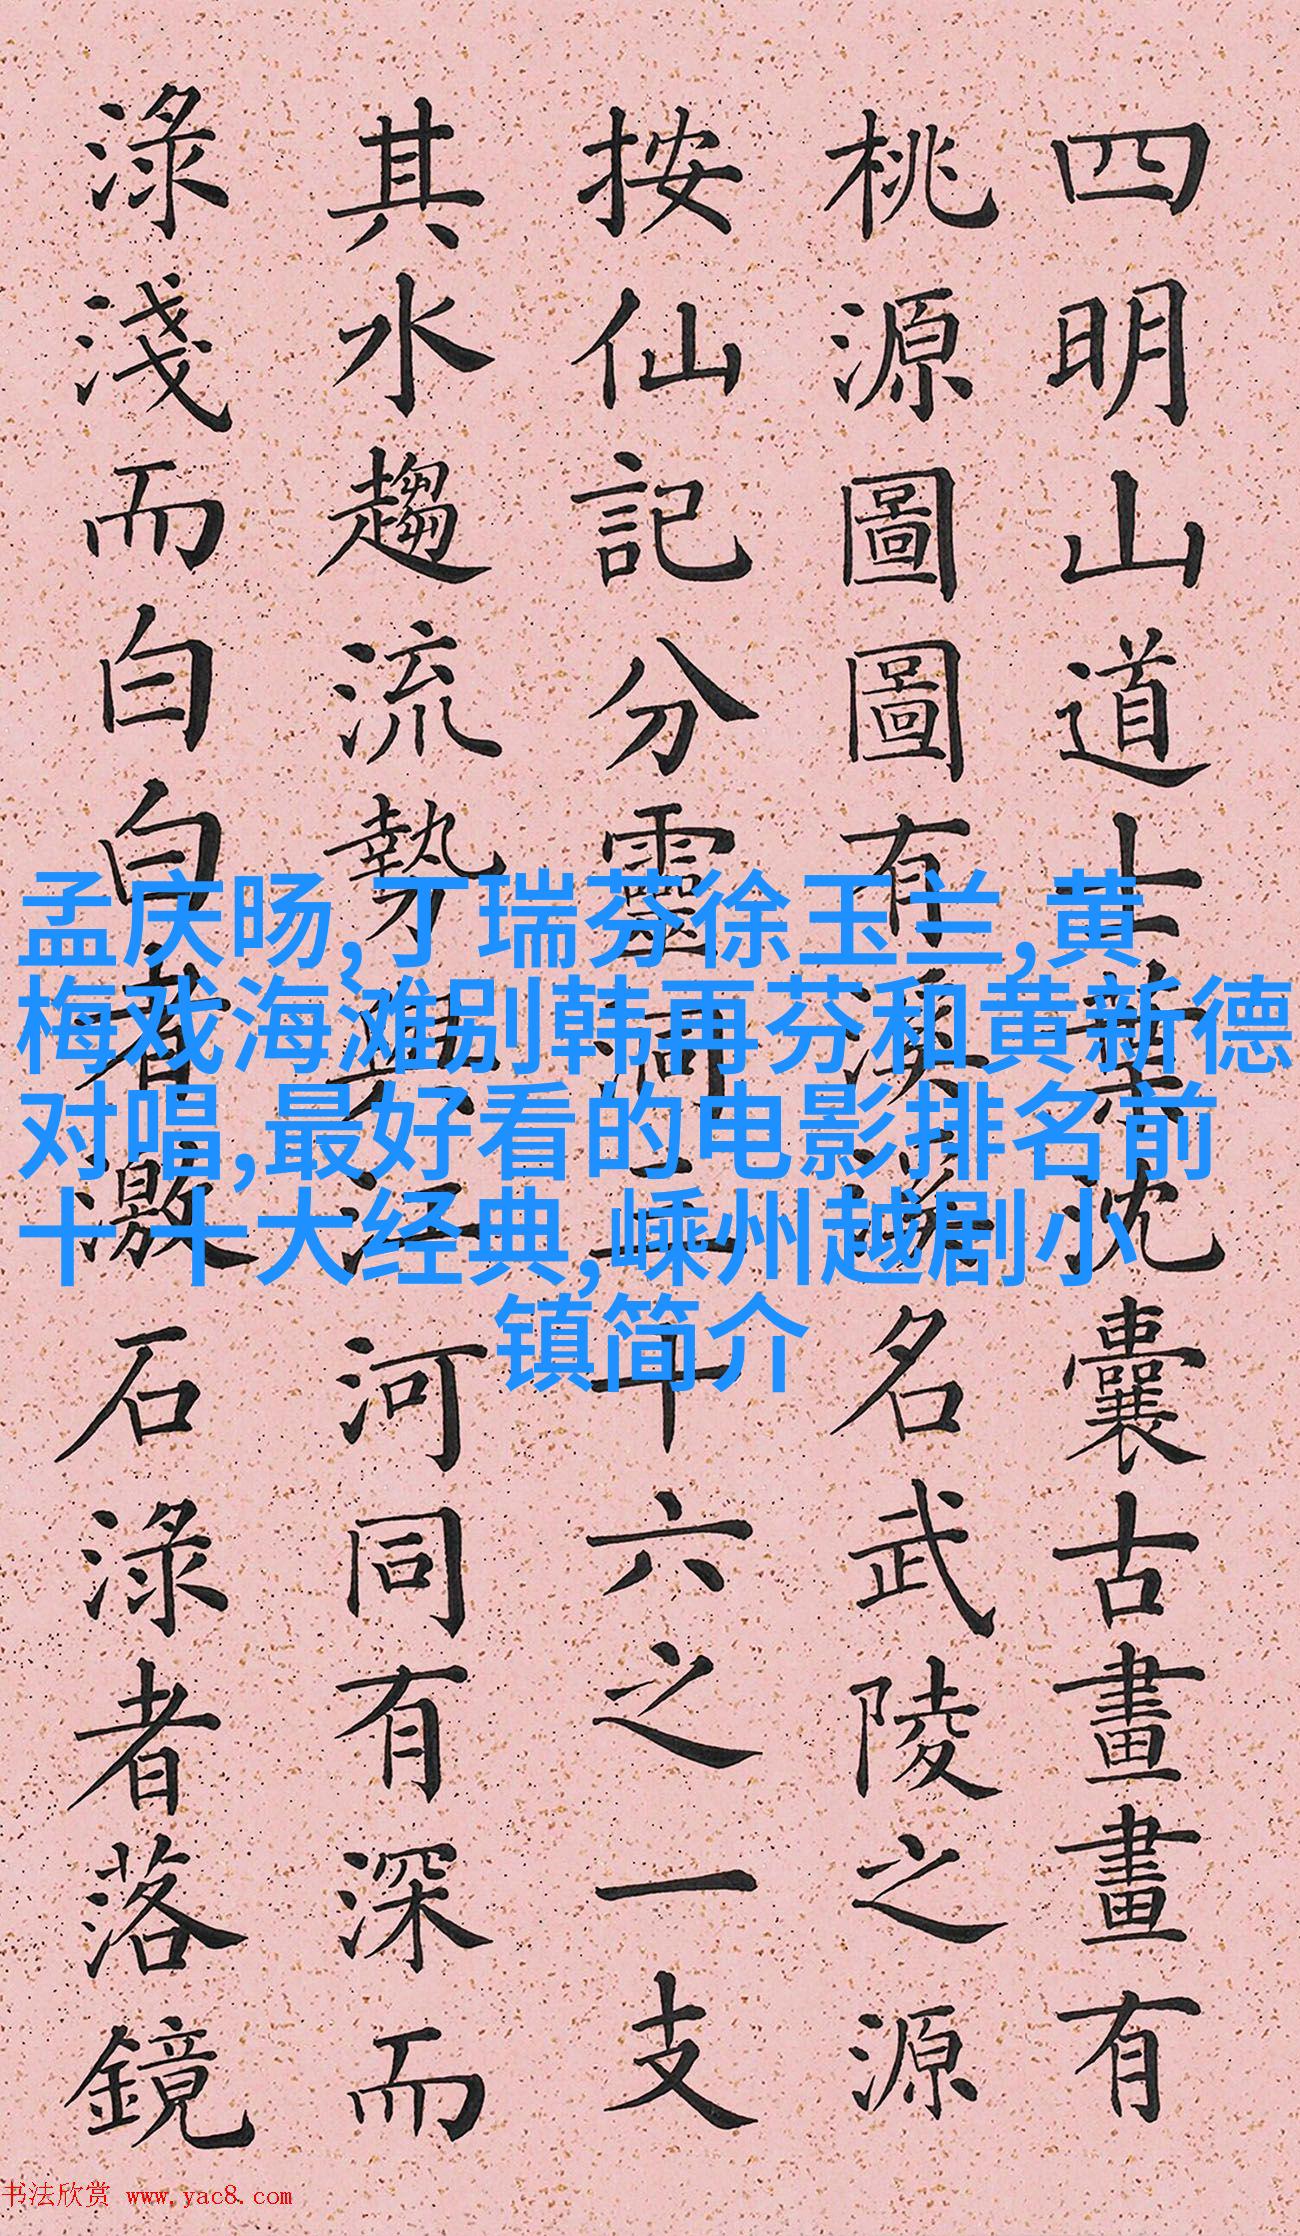 四明山道士葉沈囊古畫畫有
桃源圖圖有溪溪名武陵之源
按仙記分靈洞三十六之一支
其水趨流勢與江河同有深而
淥淺而白白者激石淥者落鏡
孟庆旸,丁瑞芬徐玉兰,黄
梅戏海滩别韩再芬和黄新德
对唱,最好看的电影排名前
十十大经典,嵊州越剧小
镇简介
书法欣赏 www.yac8.com